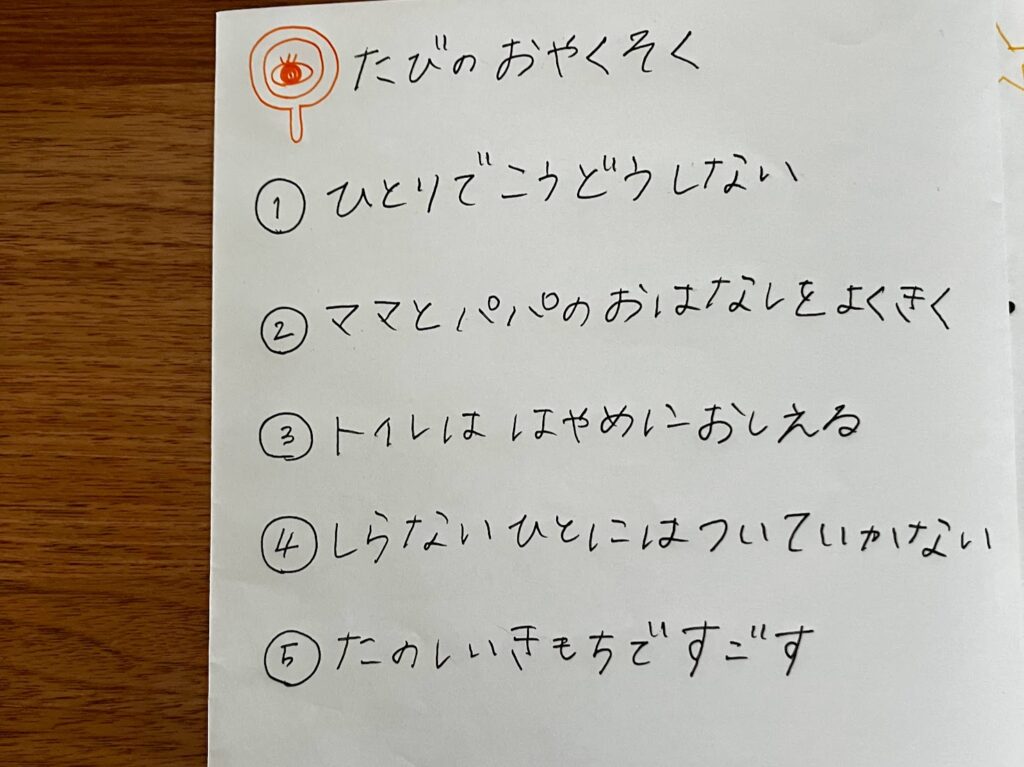 たびのおやくそく
① ひとりでこうどうしない
② ママとパパのおはなしをよくきく
③ トイレは はやめにおしえる
④ しらないひとにはついていかない
⑤ たのしいきもちですごす